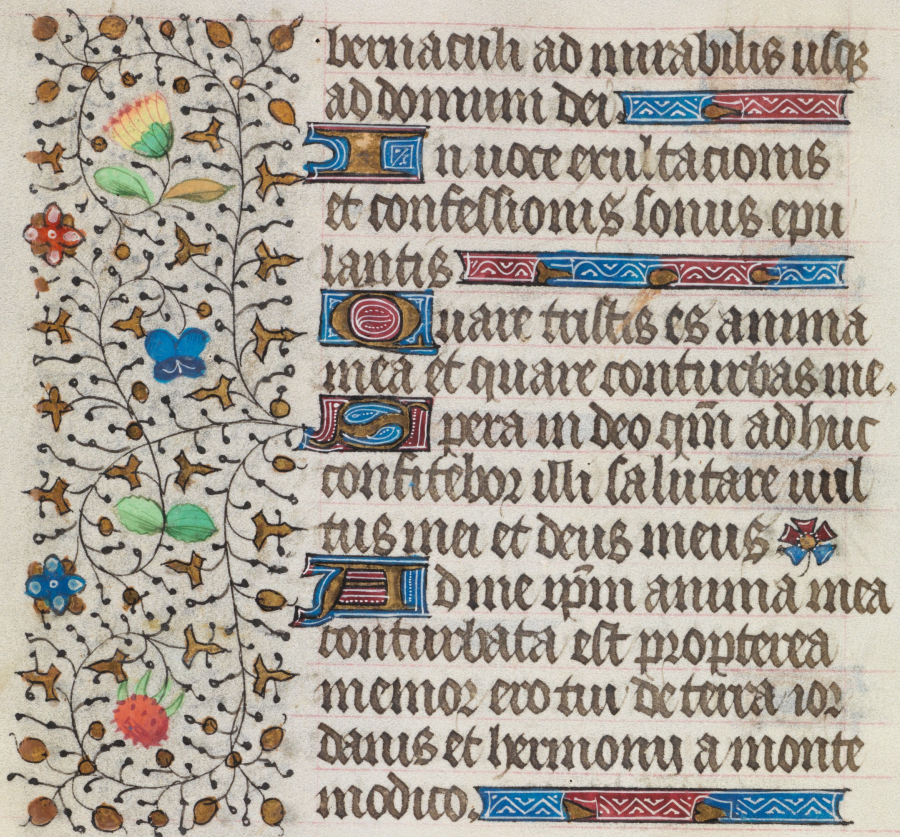 bernaculi ad mirabilis usq3
ad domum dei.
In uoce exultacionis
et confessionis sonus epu
lantis
Quare tristis es anima
mea et quare conturbas me.
Spera in deo qm̄ adhuc
confitebor illi salutare uul
tus mei et deus meus
Ad me ip̄m anima mea
conturbata est propterea
memor ero tui de terra ior
danis et hermonij a monte
modico.